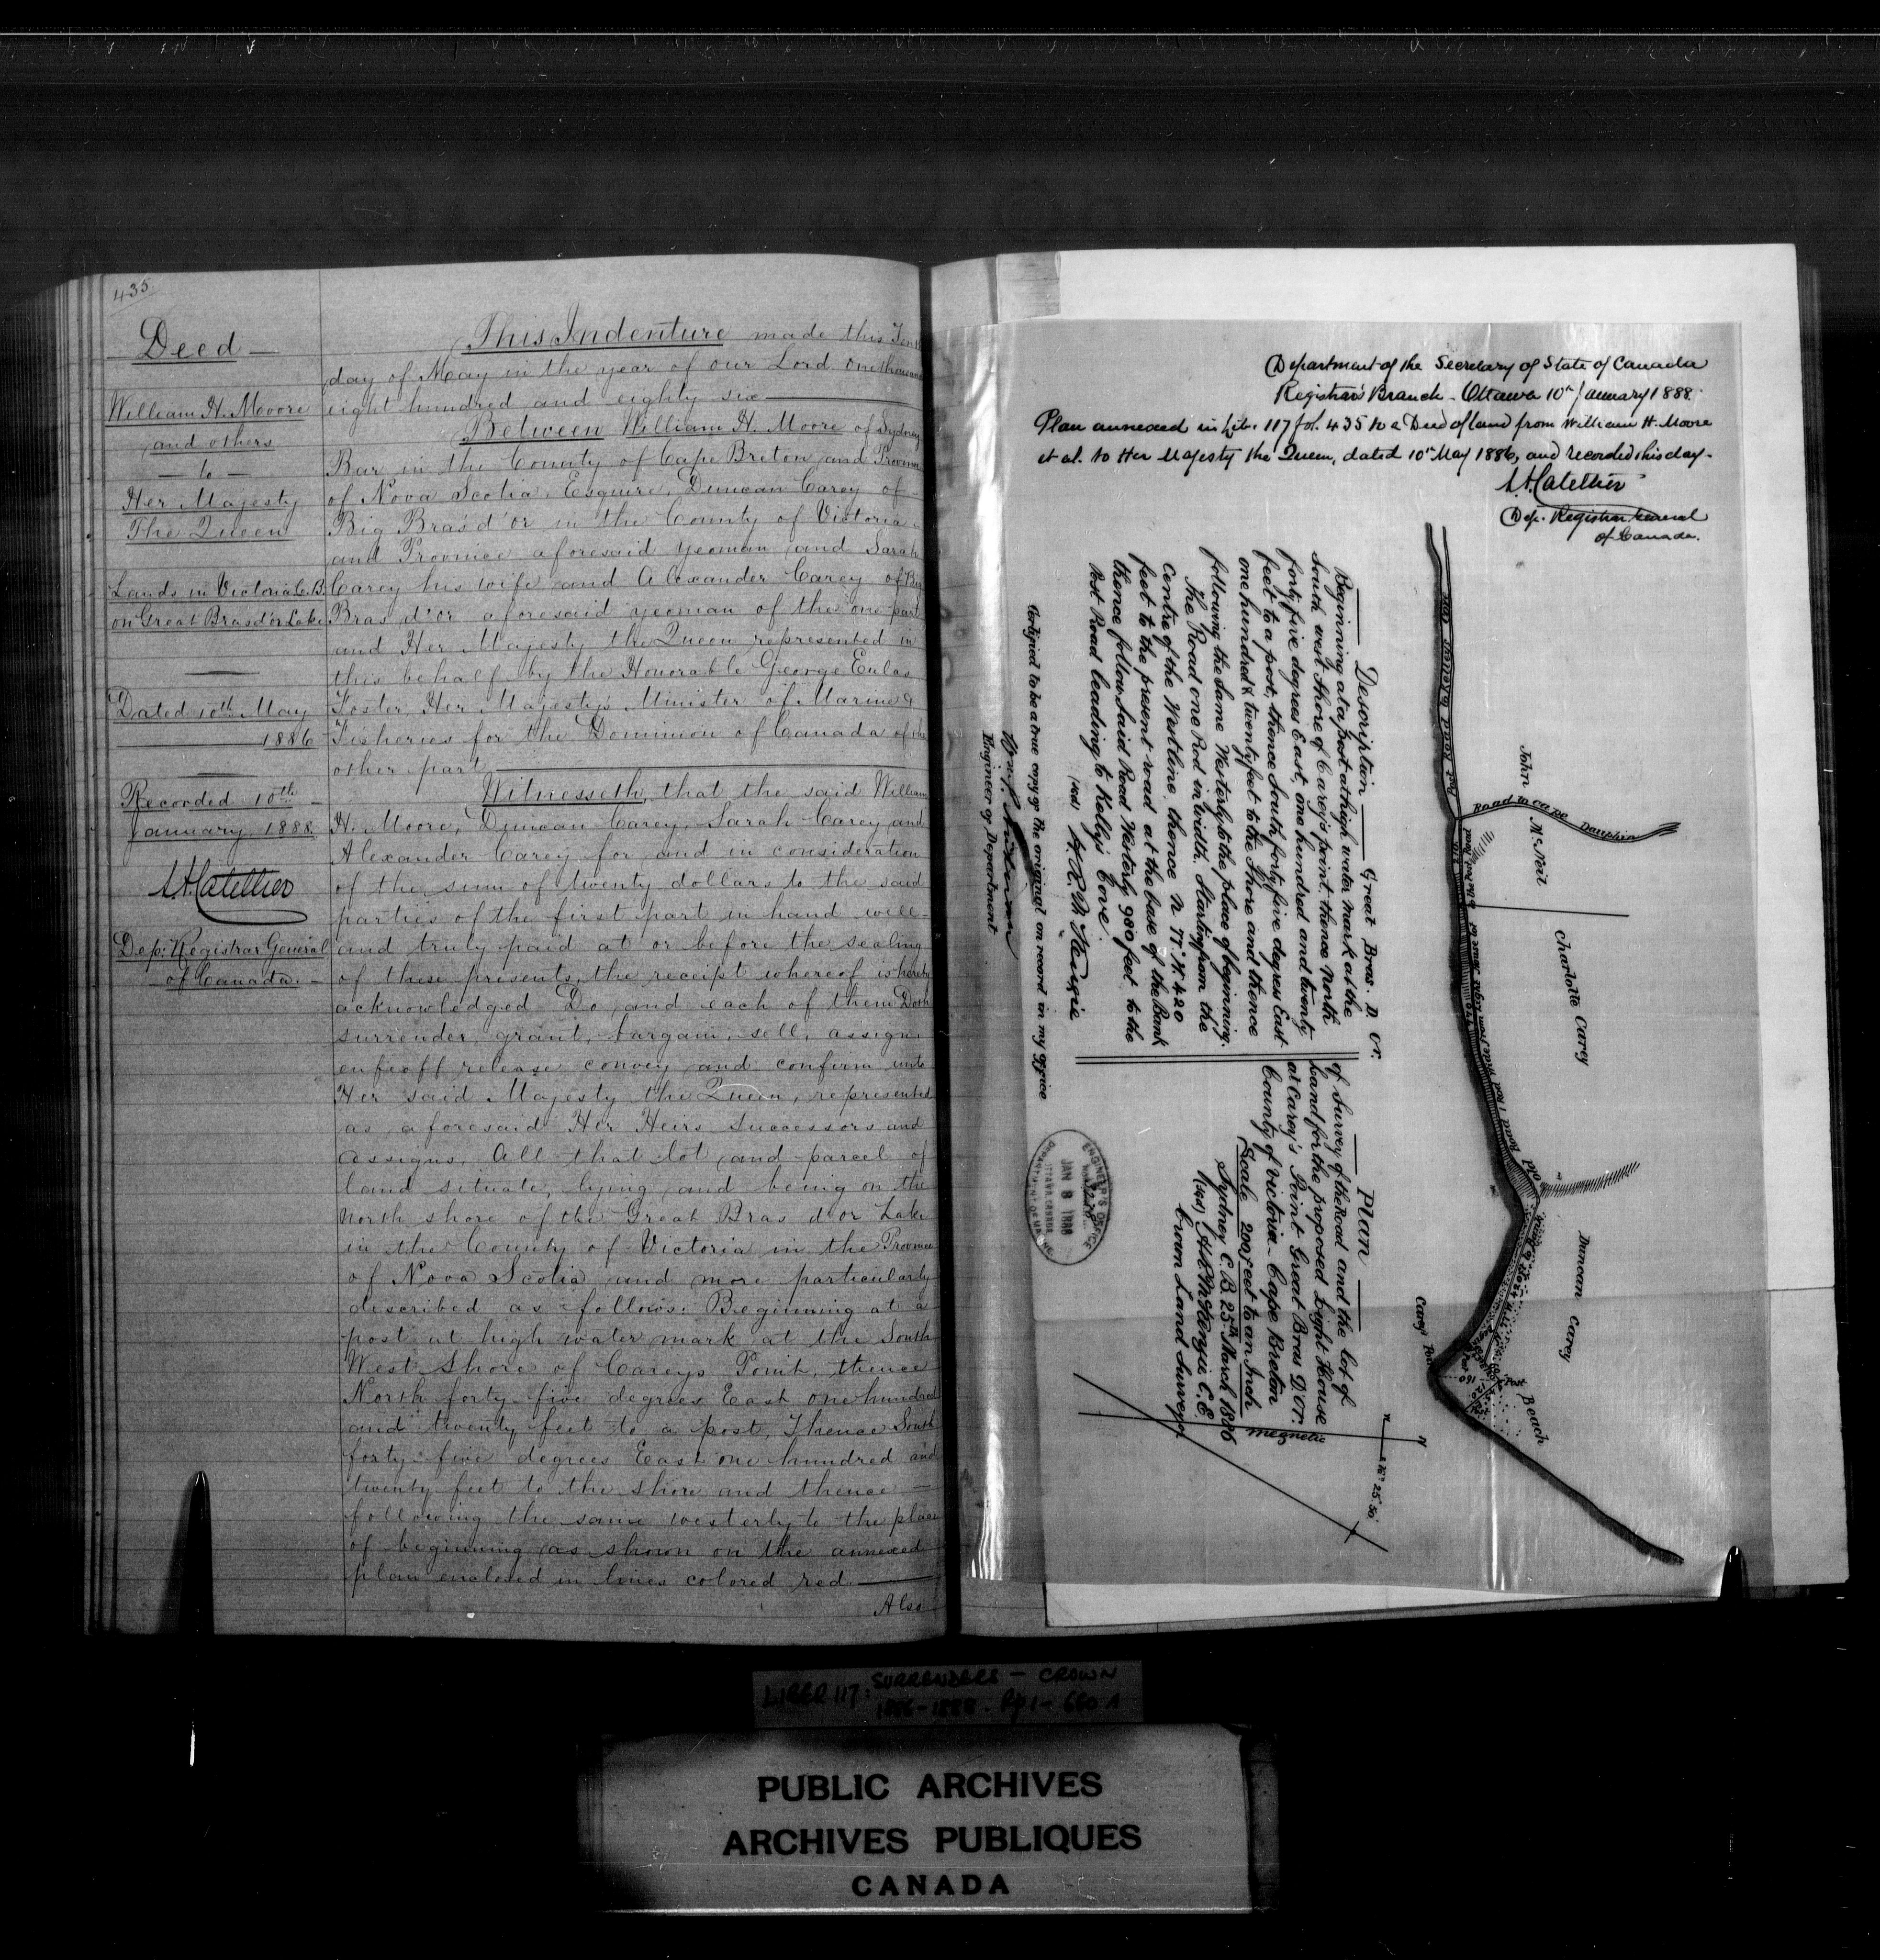 435.
Deed
William H. Moore
and others
to
Her Majesty
The Queen
Lands in Victoria C.B.
on Great Bras d'or Lake
Dated 10th May
1886
Recorded 10th
January 1888.
Dep: Registrar General
of Canada.
This Indenture made this Tenth
day of May in the year of our Lord one thousand
eight hundred and eighty six
Between William H. Moore of Sydney
Bar in the County of Cape Breton and Province
of Nova Scotia, Esquire, Duncan Carey of
Big Bras d'or in the County of Victoria
and Province aforesaid yeoman and Sarah
Carey his wife and Alexander Carey of Big
Bras d'or aforesaid yeoman of the one part
and Her Majesty the Queen represented in
this behalf by the Honorable George Eulas
Foster, Her Majesty's Minister of Marine &
Fisheries for the Dominion of Canada of the
other part
Witnesseth, that the said William
H. Moore, Duncan Carey, Sarah Carey and
Alexander Carey for and in consideration
of the sum of twenty dollars to the said
parties of the first part in hand well
and truly paid at or before the sealing
of these presents, the receipt whereof is hereby
acknowledged Do and each of them Doth
surrender, grant, bargain, sell, assign
enfeoff release convey and confirm unto
Her said Majesty the Queen, represented
as aforesaid Her Heirs Successors and
assigns, All that lot and parcel of
land situate, lying and being on the
north shore of the Great Bras d'or Lake
in the County of Victoria in the Province
of Nova Scotia and more particularly
described as follows: Beginning at a
post at high water mark at the South
West shore of Careys Point, thence
North forty five degrees East one hundred
and twenty feet to a post, Thence South
forty five degrees East one hundred and
twenty feet to the shore and thence
following the same westerly to the place
of beginning as shown on the annexed
plan enclosed in lines colored red.
Also
Department of the Secretary of State of Canada
Registrar's Branch - Ottawa 10th January 1888.
Plan annexed in Lib. 117 fol. 435 to a Deed of land from William H. Moore
et al. to Her Majesty the Queen, dated 10th May 1886, and recorded this day.
Dep. Registrar General
of Canada.
Description Great Bras. D'Or.
Beginning at a post at high water mark at the
South west shore of Carey's point, thence North
forty five degrees East, one hundred and twenty
feet to a post, thence South forty five degrees East
one hundred & twenty feet to the Shore and thence
following the same Westerly to the place of beginning.
The Road one Rod in width. Starting from the
centre of the West line thence N 77. W. 420
feet to the present road at the base of the Bank
thence follow said Road Westerly 980 feet to the
Post Road leading to Kelly's Cove.
Certified to be a true copy of the original on record in my office
Engineer of Department
Plan
of Survey of the Road and the lot of
Land for the proposed Light House
at Carey's Point Great Bras D'Or.
County of Victoria - Cape Breton
Scale 200 feet to an Inch
Sydney C.B. 25th March 1886
Crown Land Surveyor
ENGINEER'S OFFICE
JAN 8 1888
OTTAWA, CANADA
DEPARTMENT OF MARINE
Road to Cape Dauphin
John McNeil
Charlotte Carey
Duncan Carey
Carey's Point
Beach
Post
160
magnetic
N
LIBER 117: SURRENDERS - CROWN
1886-1888. Pp 1-660 A
PUBLIC ARCHIVES
ARCHIVES PUBLIQUES
CANADA